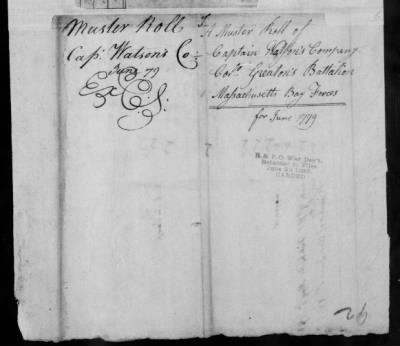 Muster Roll
Capt. Watson's Co
June 79
A Muster Roll of
Captain Watson's Company
Col. Greaton's Battalion
Massachusetts Bay Forces
for June 1779
R. & P. O. War Dep't.
CARDED
26